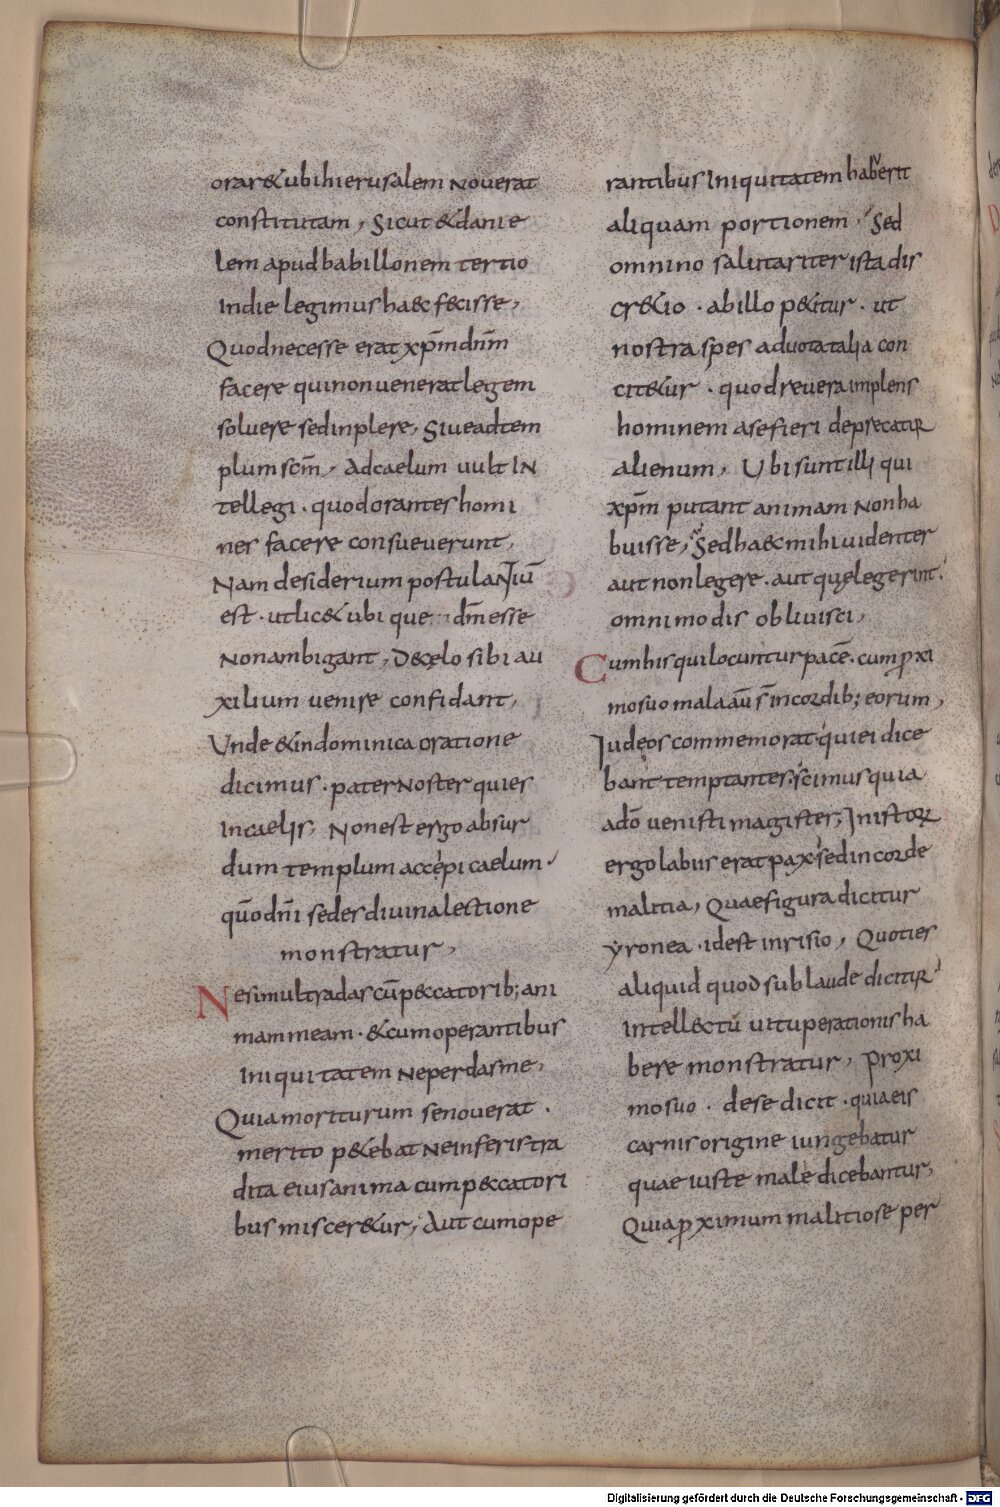 orar&ubihierusalem Nouerat
constitutam, Sicut &danie
lem apud babillonem tertio
Indie legimus ha&c f&cisse,
Quodnecesse erat xp̄m dn̄m
facere qui non uenerat legem
soluere sed inplere, Siue ad tem
plum sc̄m, Ad caelum uult IN
tellegi · quod orantes homi
nes facere consueuerunt,
Nam desiderium postulaNtiū
est · ut lic& ubique dm̄ esse
Non ambigant, De cęlo sibi au
xilium uenire confidant,
Unde & in dominica oratione
dicimus · pater Noster qui es
In caelis, Non est ergo absur
dum templum accepi caelum ·
quō dn̄i sedes diuina lectione
monstratur,
Ne simul tradas cū p&ccatorib; ani
mam meam · & cum operantibus
Iniquitatem Ne perdas me,
Quia moriturum se nouerat ·
merito p&ebat Ne inferis tra
dita eius anima cum p&ccatori
bus miscer&ur, Aut cum ope
rantibus Iniquitatem haberit
aliquam portionem, Sed
omnino salutariter ista dis
cr&io · ab illo p&itur · ut
nostra spes ad uota talia con
cit&ur · quod reuera implens
hominem a se fieri deprecatur
alienum, Ubi sunt illi qui
xp̄m putant animam Non ha
buisse, Sed ha&c mihi uidentur
aut non legere · aut quę legerint
omnimodis obliuisci,
Cum his qui locuntur pacē · cum p̱xi
mo suo mala aū s̄ in cordib; eorum,
Judęos commemorat · qui ei dice
bant temptantes · scimus quia
a dō uenisti magister, In istor
ergo labiis erat pax · sed in corde
malitia, Quae figura dicitur
yronea · id est inrisio, Quoties
aliquid quod sub laude dicitur
Intell&ctū uituperationis ha
bere monstratur, Proxi
mo suo · de se dicit · quia eis
carnis origine iungebatur
quae iuste male dicebantur,
Quia p̱ximum malitiose per
Digitalisierung gefördert durch die Deutsche Forschungsgemeinschaft - DFG